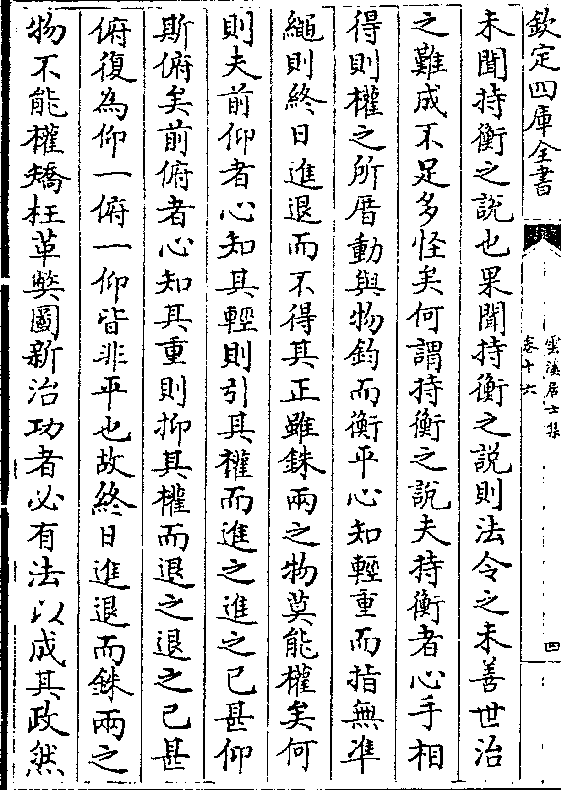 欽定四庫全書
雲溪居士集
卷十六
四
未聞持衡之說也果聞持衡之說則法令之未善世治
之難成不足多怪矣何謂持衡之說夫持衡者心手相
得則權之所厝動與物鈞而衡平心知輕重而指無準
繩則終日進退而不得其正雖銖兩之物莫能權矣何
則夫前仰者心知其輕則引其權而進之進之已甚仰
斯俯矣前俯者心知其重則抑其權而退之退之已甚
俯復為仰一俯一仰皆非平也故終日進退而銖兩之
物不能權矯枉革弊圖新治功者必有法以成其政然